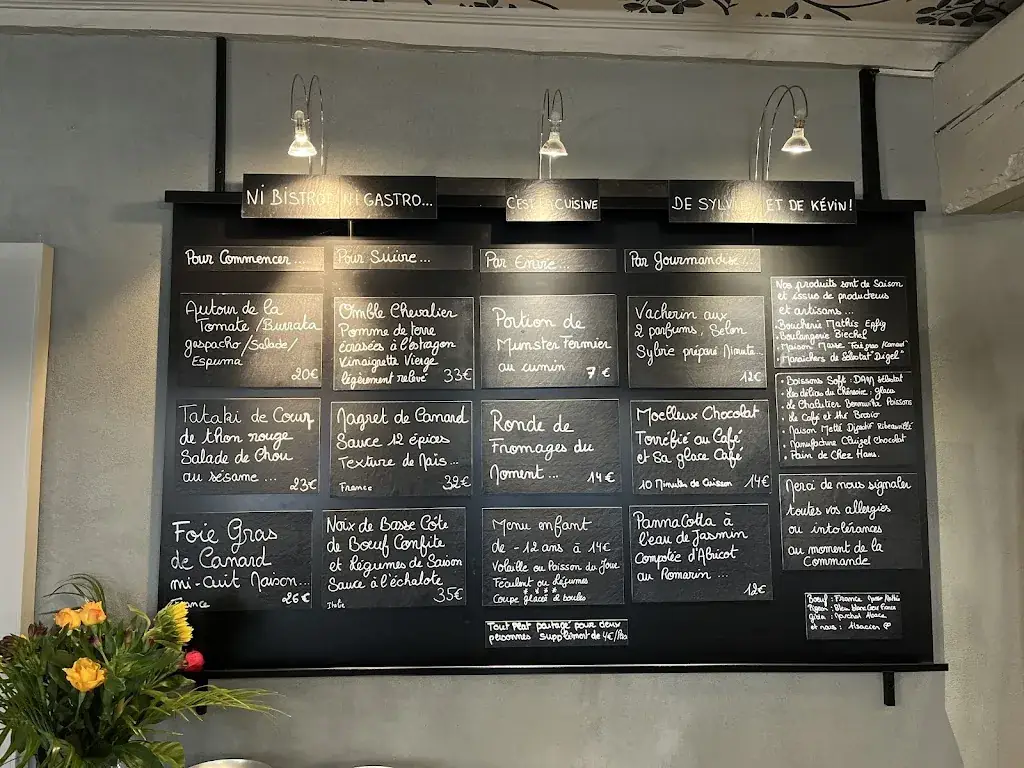 NI BISTROT NI GASTRO...
C'EST LA CUISINE
DE SYLVIE ET DE KÉVIN!
Pour Commencer...
Autour de la
Tomate/Burrata
gespacho/Salade/
Espuma
20€
Tataki de Cœur
de thon rouge
Salade de Chou
au sésame...
23€
Foie Gras
de Canard
mi-cuit Maison...
France 26€
Pour Suivre...
Omble Chevalier
Pomme de terre
écrasées à l'estragon
Vinaigrette Vierge
légèrement relevé 33€
Magret de Canard
Sauce 12 épices
Texture de Maïs...
France 32€
Noix de Basse Côte
de Bœuf Confite
et Légumes de Saison
Sauce à l'échalote
Italie 35€
Par Envie...
Portion de
Munster fermier
au cumin 7€
Ronde de
Fromages du
Moment... 14€
Menu enfant
de -12 ans à 14€
Volaille ou Poisson du Jour
Féculent ou Légumes
****
Coupe glacée 2 boules
Tout Plat partagé pour deux
personnes supplément de 4€/Pers
Par Gourmandise...
Vacherin aux
2 parfums, Selon
Sylvie préparé Minute...
12€
Moelleux Chocolat
Torréfié au Café
et Sa glace Café
10 Minutes de Cuisson 14€
PannaCotta à
l'eau de Jasmin
Compotée d'Abricot
au Romarin...
12€
Nos produits sont de Saison
et issue de producteurs
et artisans...
- Boucherie Mathis Epfig
- Boulangerie Biechel
- Maison Masse "Foie gras/Canard"
- Maraîchers de Sélestat "Digel"
• Boissons Soft: DAM Sélestat
• Les délices du Chénoire: glaces
• Le Chalutier Poissons
• Le Café et thé
• Maison Metté Digestif Ribeauvillé
• Manufacture Chocolat
• Pain de Chez Hans.
Merci de nous signaler
toutes vos allergies
ou intolérances
au moment de la
Commande
Bœuf: France
Pigeon: France
Alsace
et nous: Alsacien